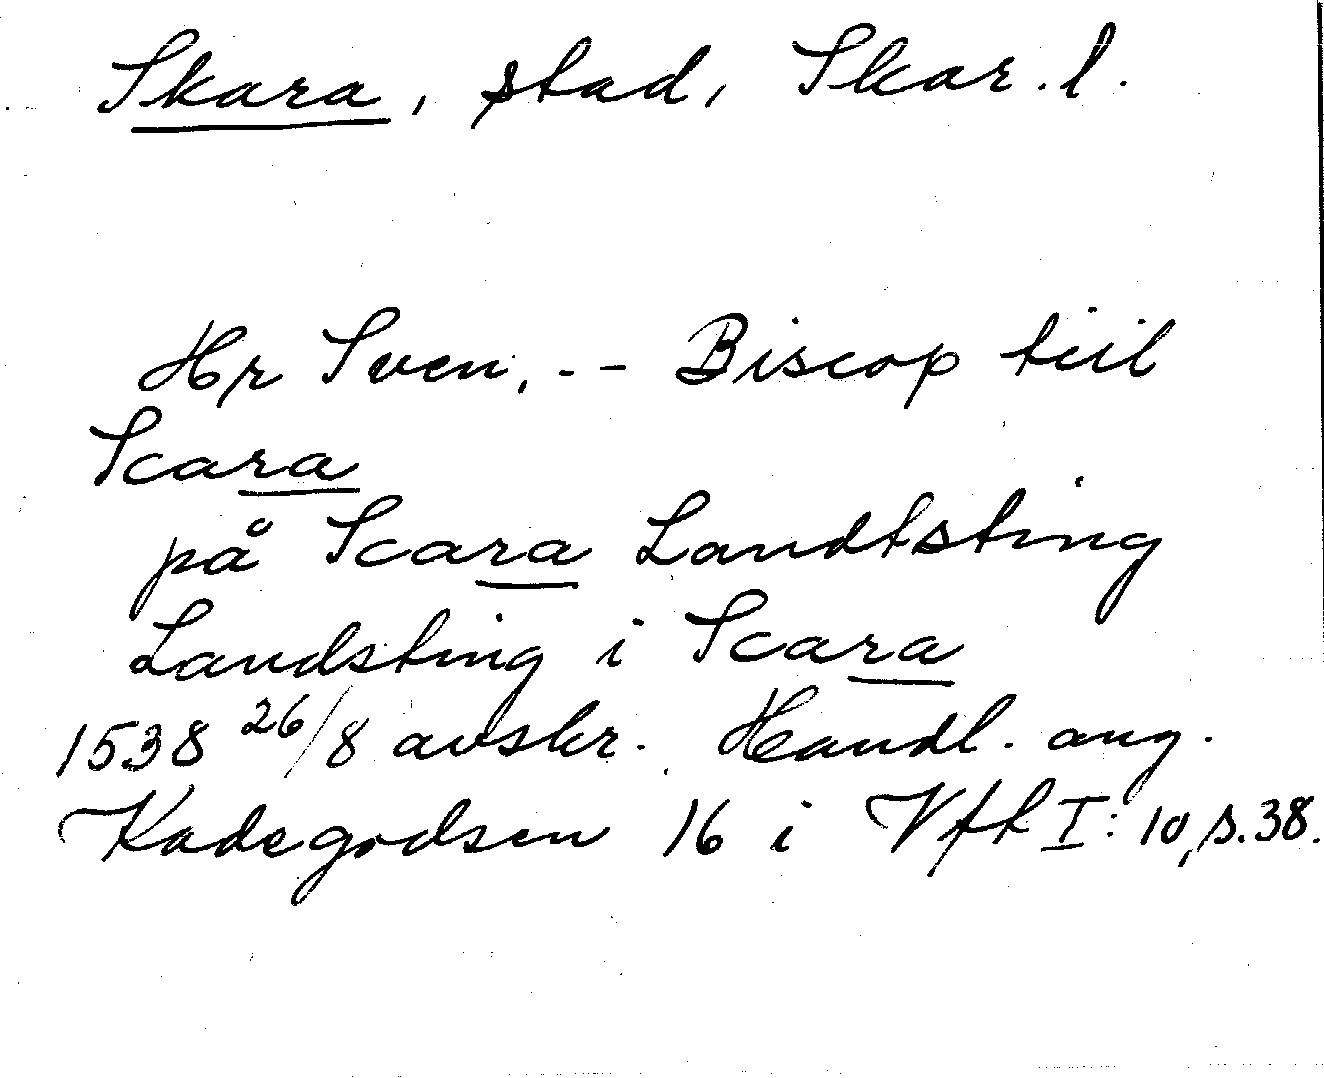 Skara, stad, Skar. l.
Hr Sven, -- Biscop tiil
Scara
på Scara Landtsting
Landsting i Scara
1538 26/8 avskr. Handl. ang.
Kadegodsen 16 i Vfft I: 10, s. 38.